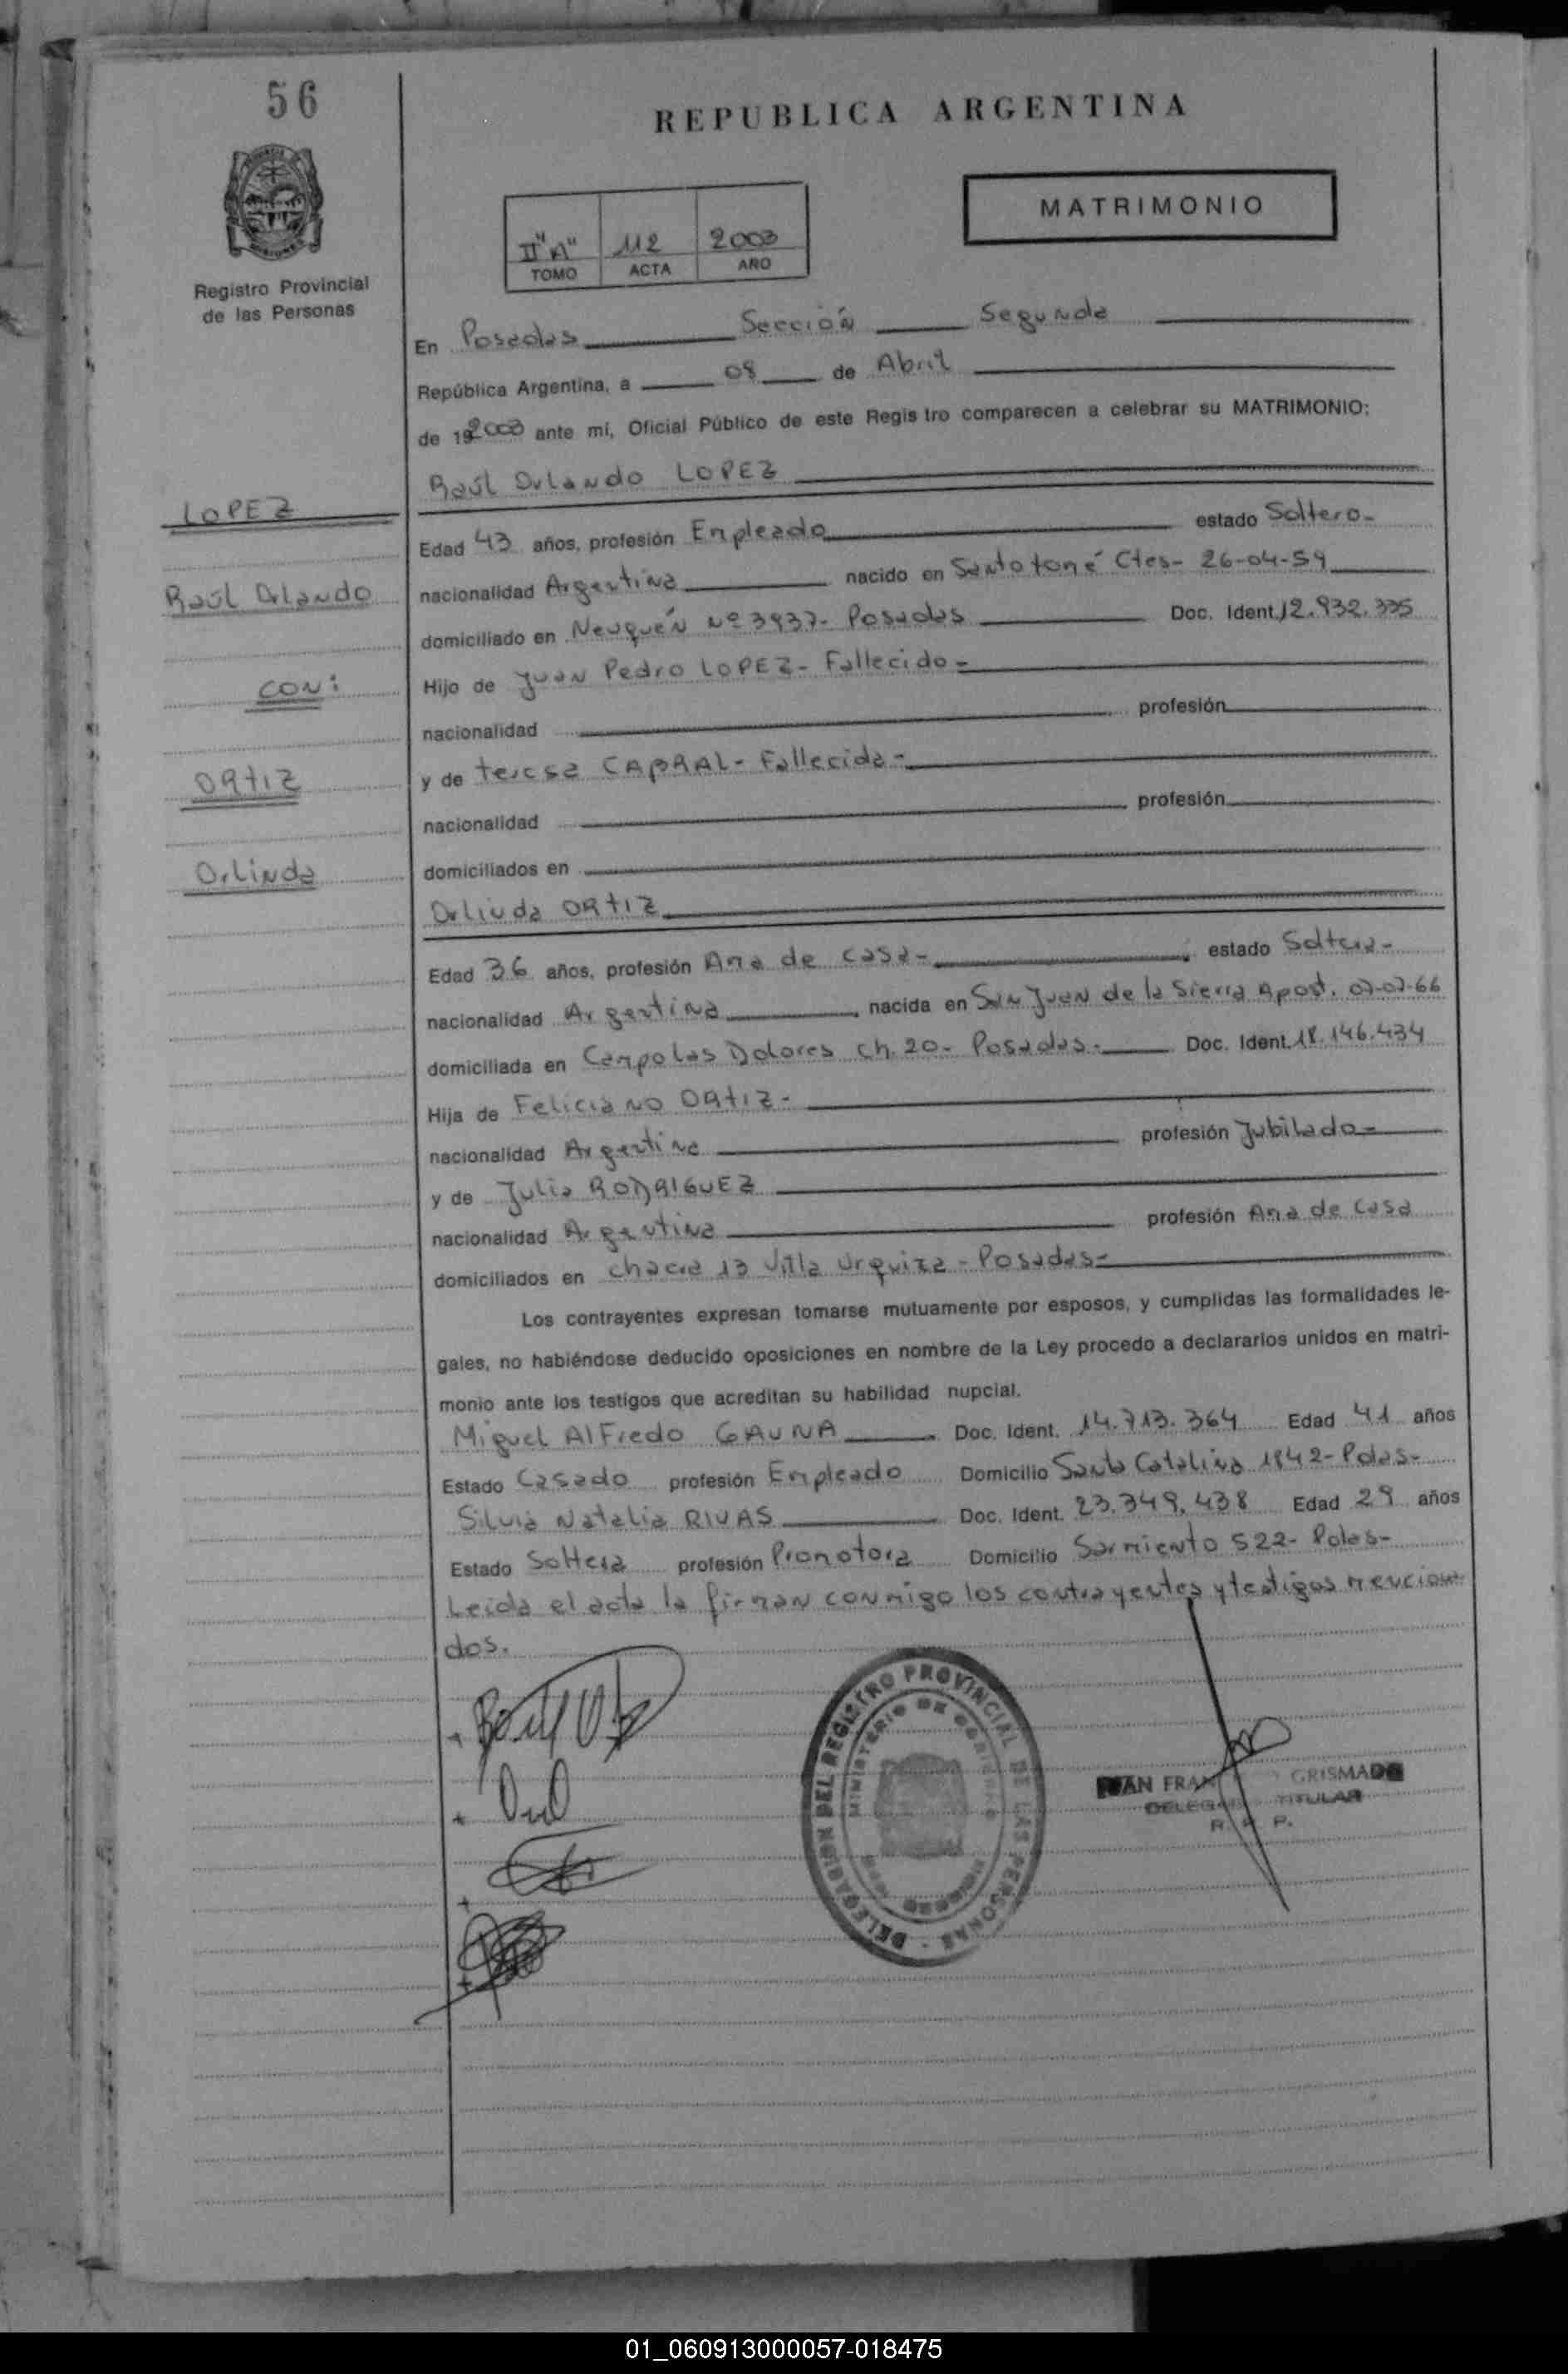 56
REPUBLICA ARGENTINA
MATRIMONIO
II"A" 112 2003
TOMO ACTA AÑO
Registro Provincial
de las Personas
En Posadas Sección Segunda
República Argentina, a 08 de Abril
de 2003 ante mí, Oficial Público de este Registro comparecen a celebrar su MATRIMONIO:
Raúl Orlando LOPEZ
LOPEZ
Raúl Orlando
CON:
ORTIZ
Orlinda
Edad 43 años, profesión Empleado estado Soltero-
nacionalidad Argentina nacido en Santo tomé Ctes- 26-04-59
domiciliado en Neuquén Nº 3937- Posadas Doc. Ident. 12.932.335
Hijo de Juan Pedro LOPEZ- Fallecido-
nacionalidad profesión
y de teresa CABRAL- Fallecida-
nacionalidad profesión
domiciliados en
Orlinda ORTIZ
Edad 36 años, profesión Ama de casa- estado Soltera-
nacionalidad Argentina nacida en San Juan de la Sierra Apost. 07-07-66
domiciliada en Campo Las Dolores Ch. 20- Posadas- Doc. Ident. 18.146.434
Hija de Feliciano ORTIZ-
nacionalidad Argentina profesión Jubilado-
y de Julia RODRIGUEZ
nacionalidad Argentina profesión Ama de Casa
domiciliados en chacra 13 Villa Urquiza - Posadas-
Los contrayentes expresan tomarse mutuamente por esposos, y cumplidas las formalidades le-
gales, no habiéndose deducido oposiciones en nombre de la Ley procedo a declararlos unidos en matri-
monio ante los testigos que acreditan su habilidad nupcial.
Miguel Alfredo GAUNA Doc. Ident. 14.713.364 Edad 41 años
Estado Casado profesión Empleado Domicilio Santa Catalina 1842- Pdas-
Silvia Natalia RIVAS Doc. Ident. 23.349.438 Edad 29 años
Estado Soltera profesión Promotora Domicilio Sarmiento 522- Pdas-
Leida el acta la firman conmigo los contrayentes y testigos menciona
dos.
DELEGACION DEL REGISTRO PROVINCIAL DE LAS PERSONAS
MINISTERIO DE GOBIERNO
JUAN FRAN GRISMADO
DELEGADO TITULAR
R. P. P.
01_060913000057-018475